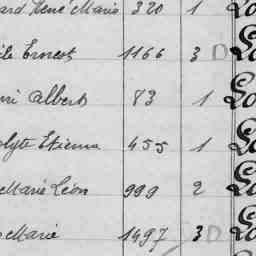 ard René Marie 320 1 Lo
ile Ernest 1166 3 D Lo
nri Albert 83 1 Lo
olyte Etienne 455 1 Lo
Marie Léon 999 2 Lo
Marie 1497 3 D Lo